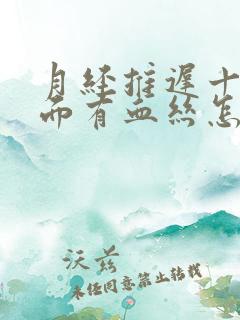 月经推迟十
而有血丝怎
沃兹
未经同意禁止转载